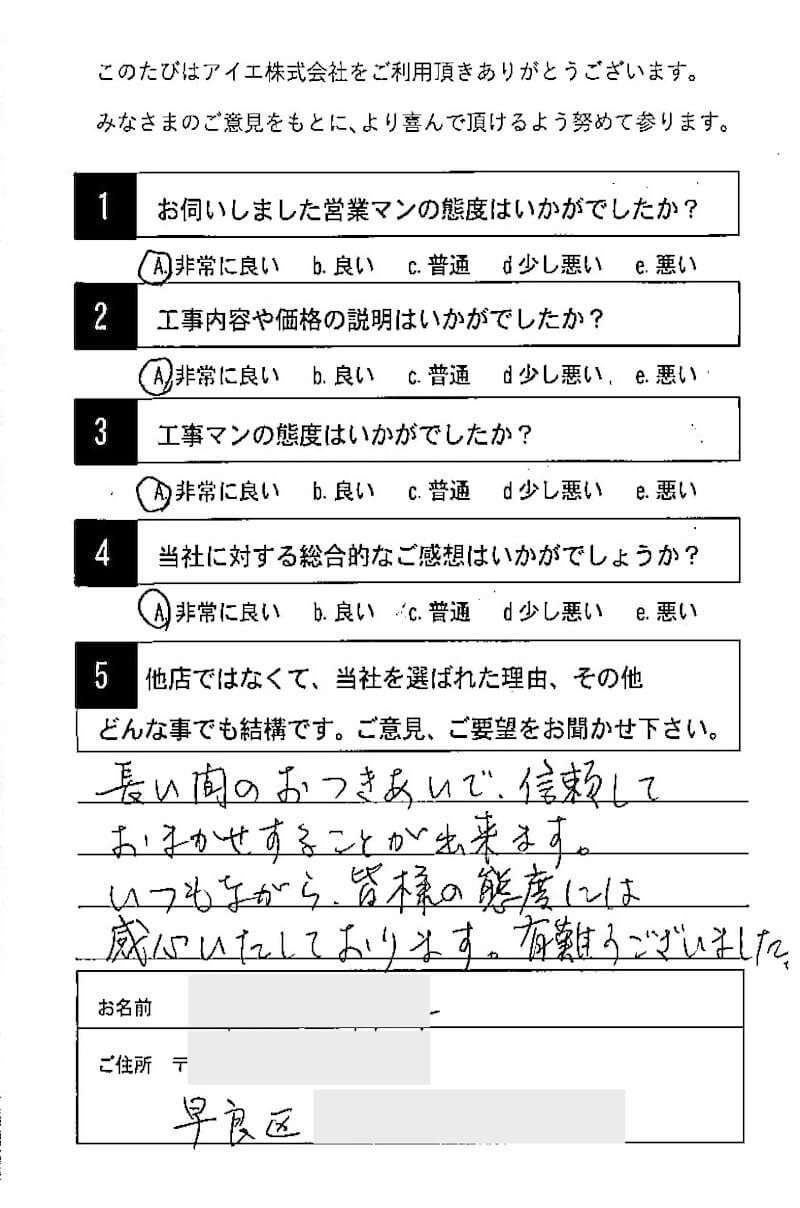 このたびはアイエ株式会社をご利用頂きありがとうございます。
みなさまのご意見をもとに、より喜んで頂けるよう努めて参ります。
1 お伺いしました営業マンの態度はいかがでしたか?
A. 非常に良い b. 良い c. 普通 d 少し悪い e. 悪い
2 工事内容や価格の説明はいかがでしたか?
A. 非常に良い b. 良い c. 普通 d 少し悪い e. 悪い
3 工事マンの態度はいかがでしたか?
A. 非常に良い b. 良い c. 普通 d 少し悪い e. 悪い
4 当社に対する総合的なご感想はいかがでしょうか?
A. 非常に良い b. 良い c. 普通 d 少し悪い e. 悪い
5 他店ではなくて、当社を選ばれた理由、その他
どんな事でも結構です。ご意見、ご要望をお聞かせ下さい。
長い間のおつきあいで、信頼して
おまかせすることが出来ます。
いつもながら、皆様の態度には
感心いたしております。有難うございました。
お名前
ご住所 〒
早良区